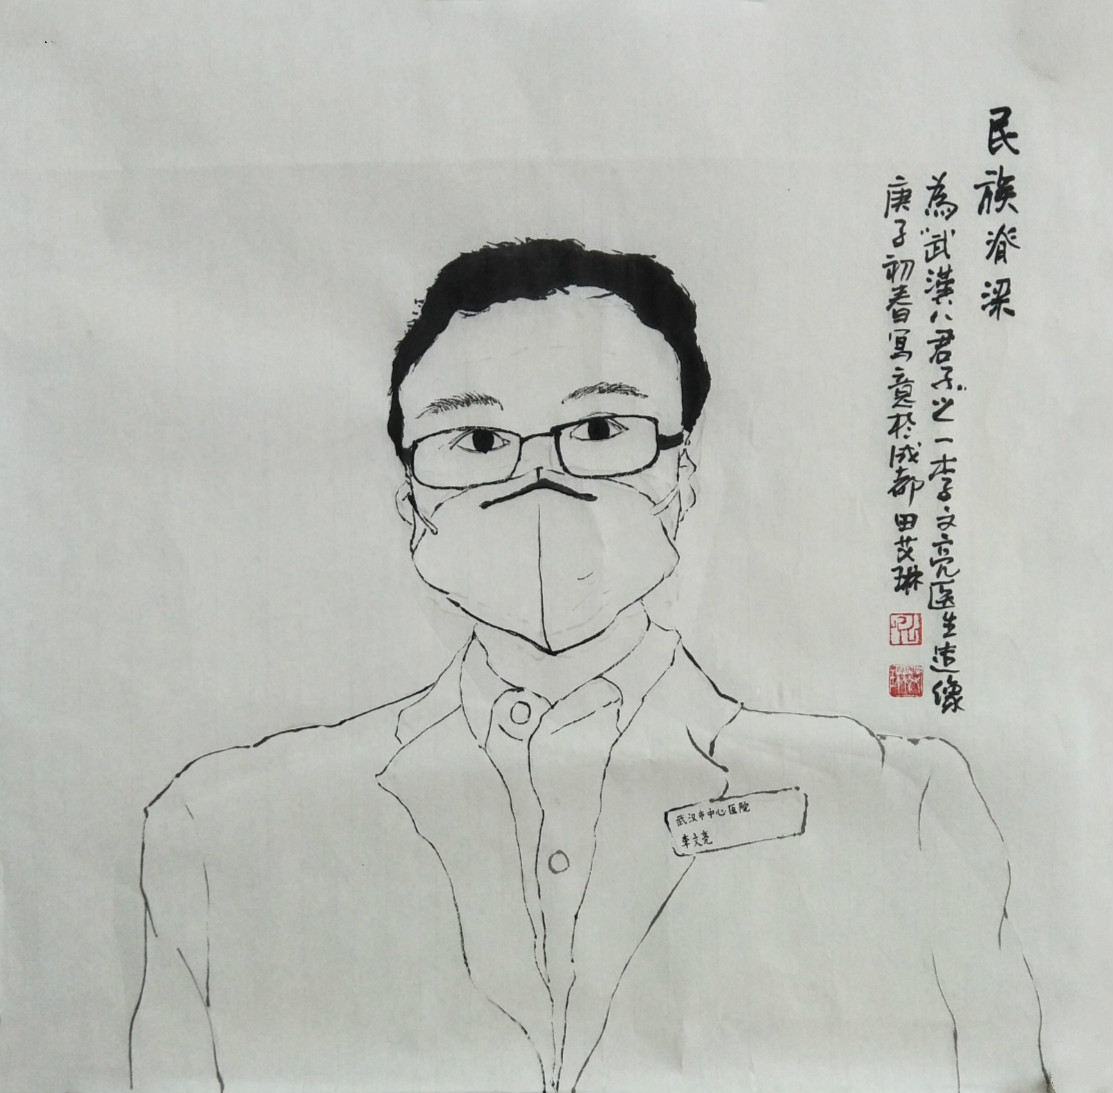 民族脊梁
為“武漢八君子”之一李文亮医生造像
庚子初春寫意於成都 田艾琳
武汉市中心医院
李文亮